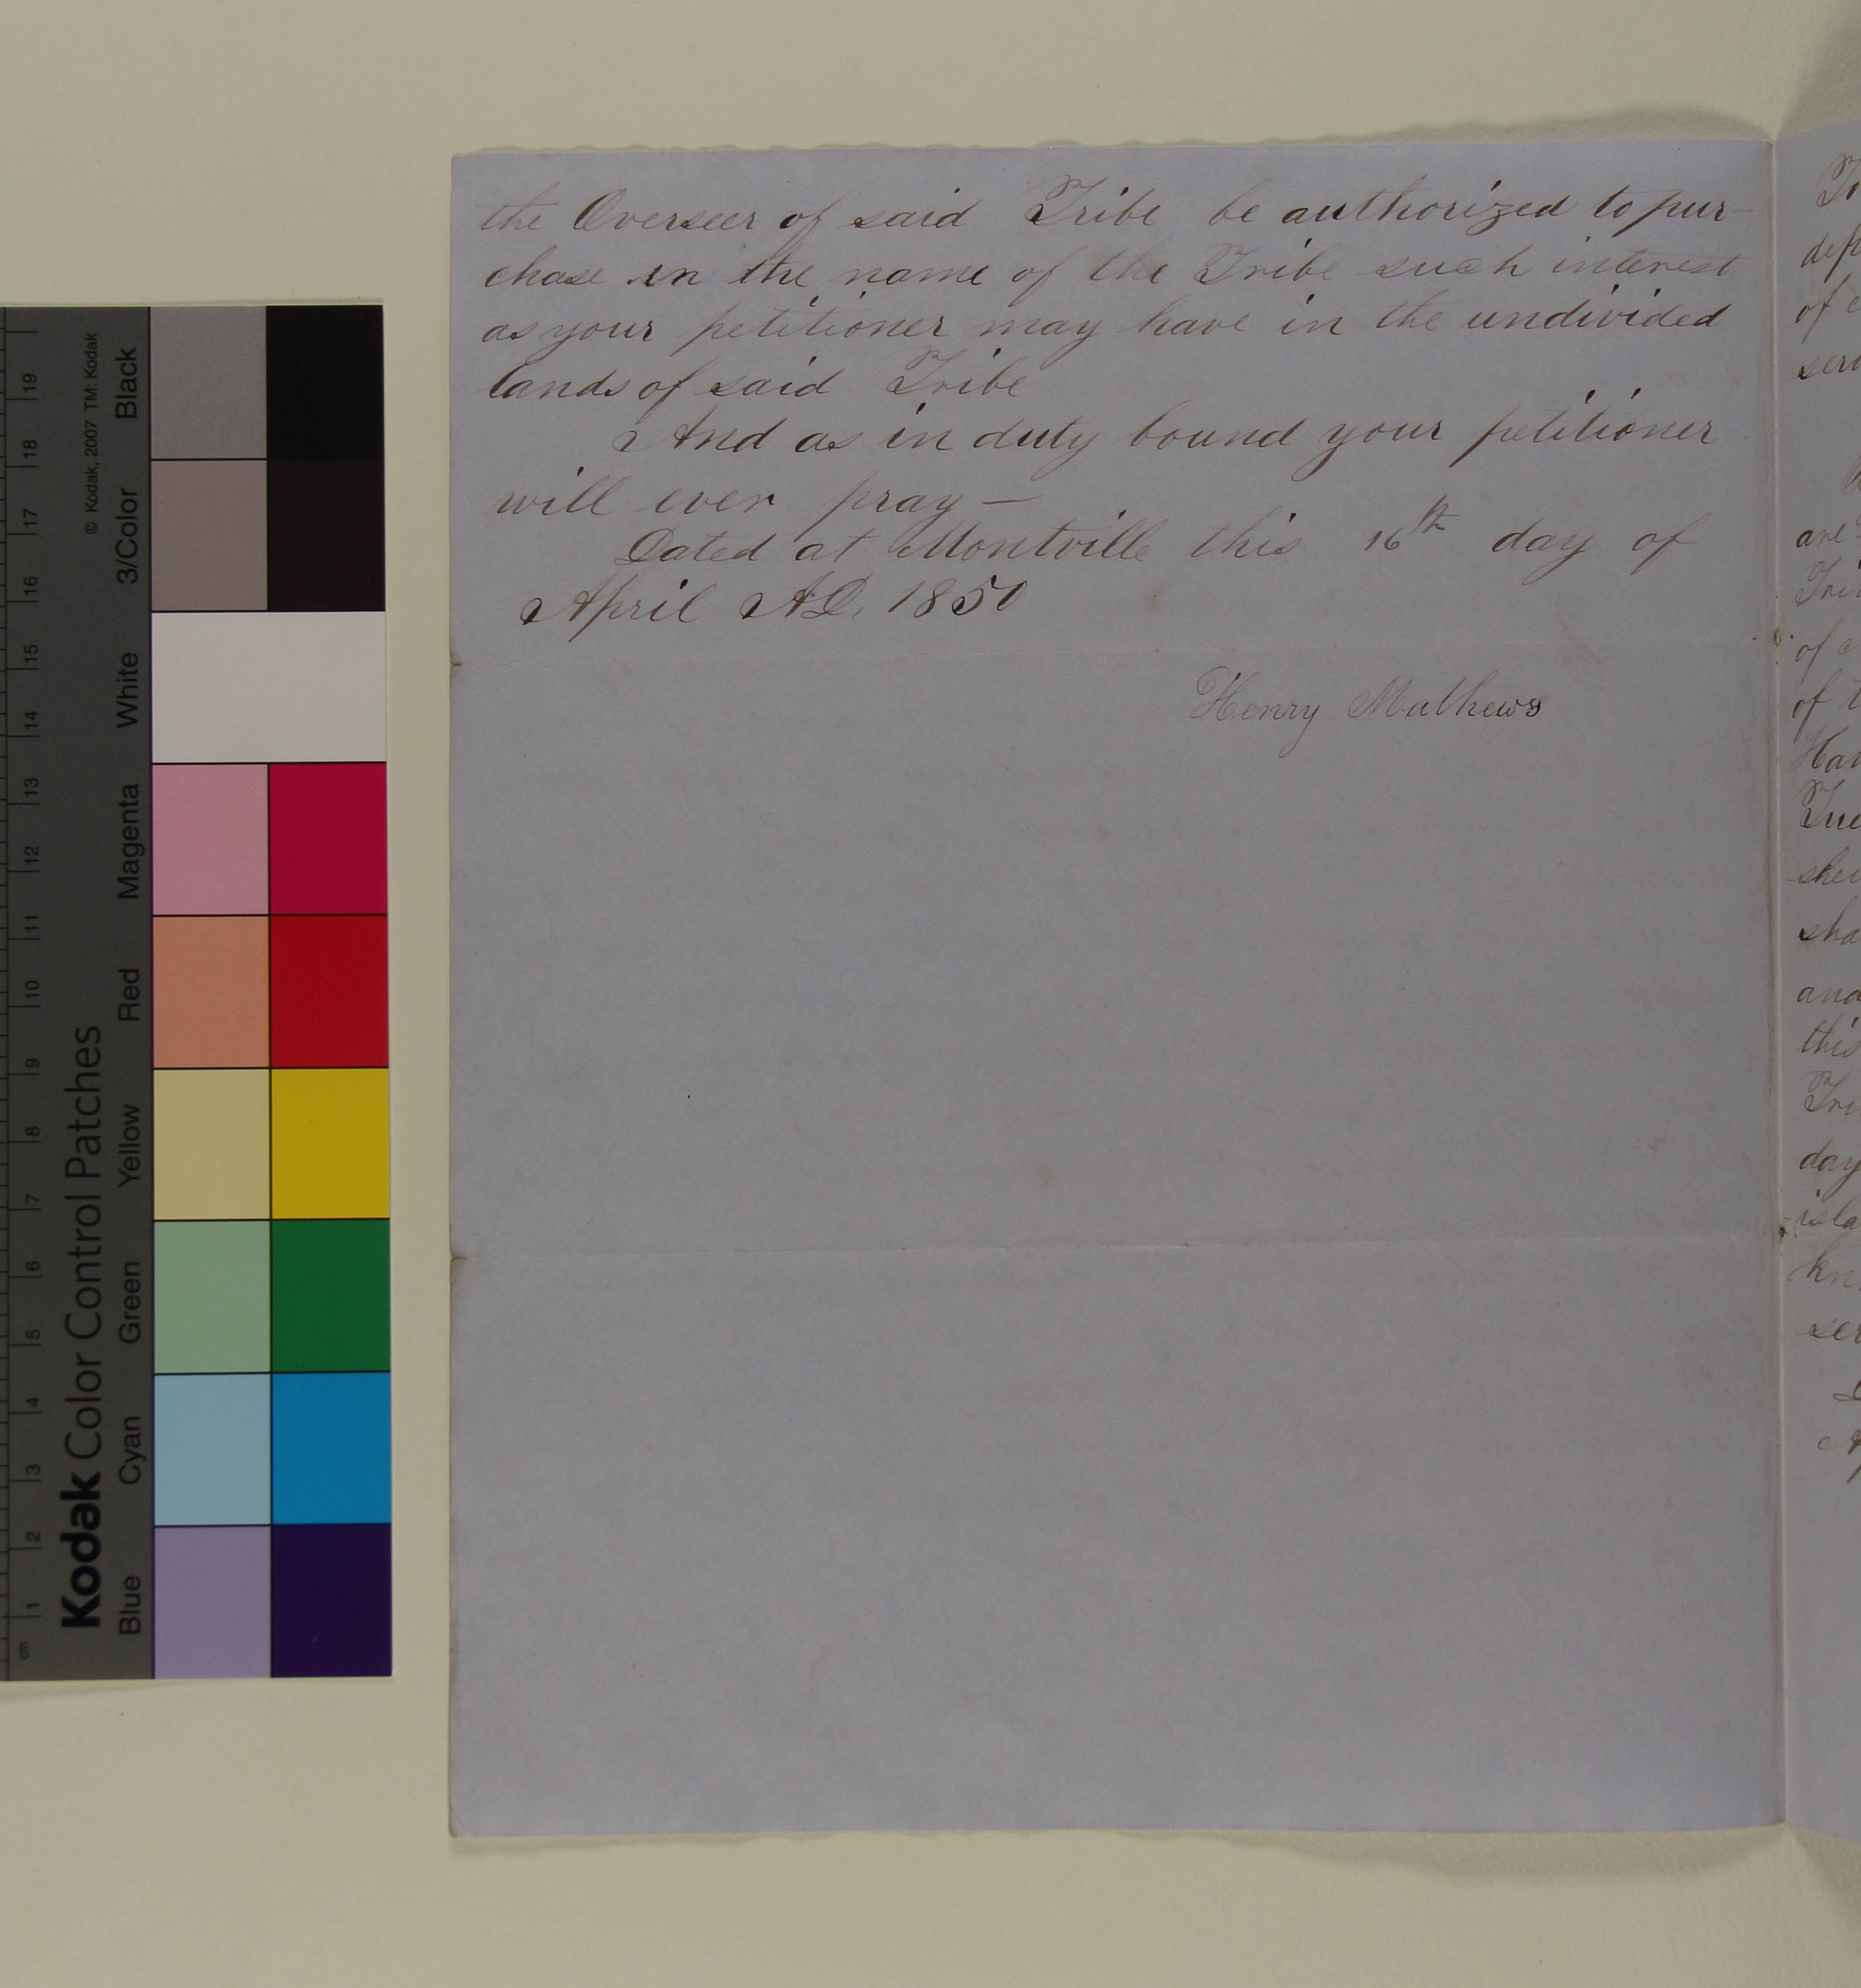 the Overseer of said Tribe be authorized to pur-
chase in the name of the Tribe such interest
as your petitioner may have in the undivided
lands of said Tribe
And as in duty bound your petitioner
will ever pray —
Dated at Montville this 16th day of
April A.D. 1850
Henry Mathews
Kodak Color Control Patches
© Kodak, 2007 TM: Kodak
Blue Cyan Green Yellow Red Magenta White 3/Color Black
cm 1 2 3 4 5 6 7 8 9 10 11 12 13 14 15 16 17 18 19
of
are
of
of
and
this
day